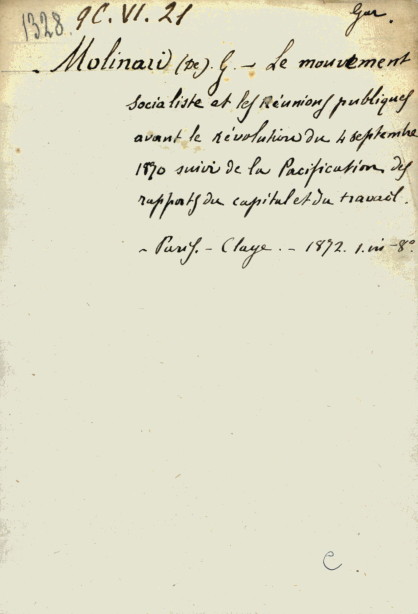 1328 9C. VI. 21 Gar.
Molinari (De) G. - Le mouvement
socialiste et les Réunions publiques
avant le révolution du 4 septembre
1870 suivi de la Pacification des
rapports du capital et du travail.
- Paris. - Claye. - 1872. 1. in-8°.
C.